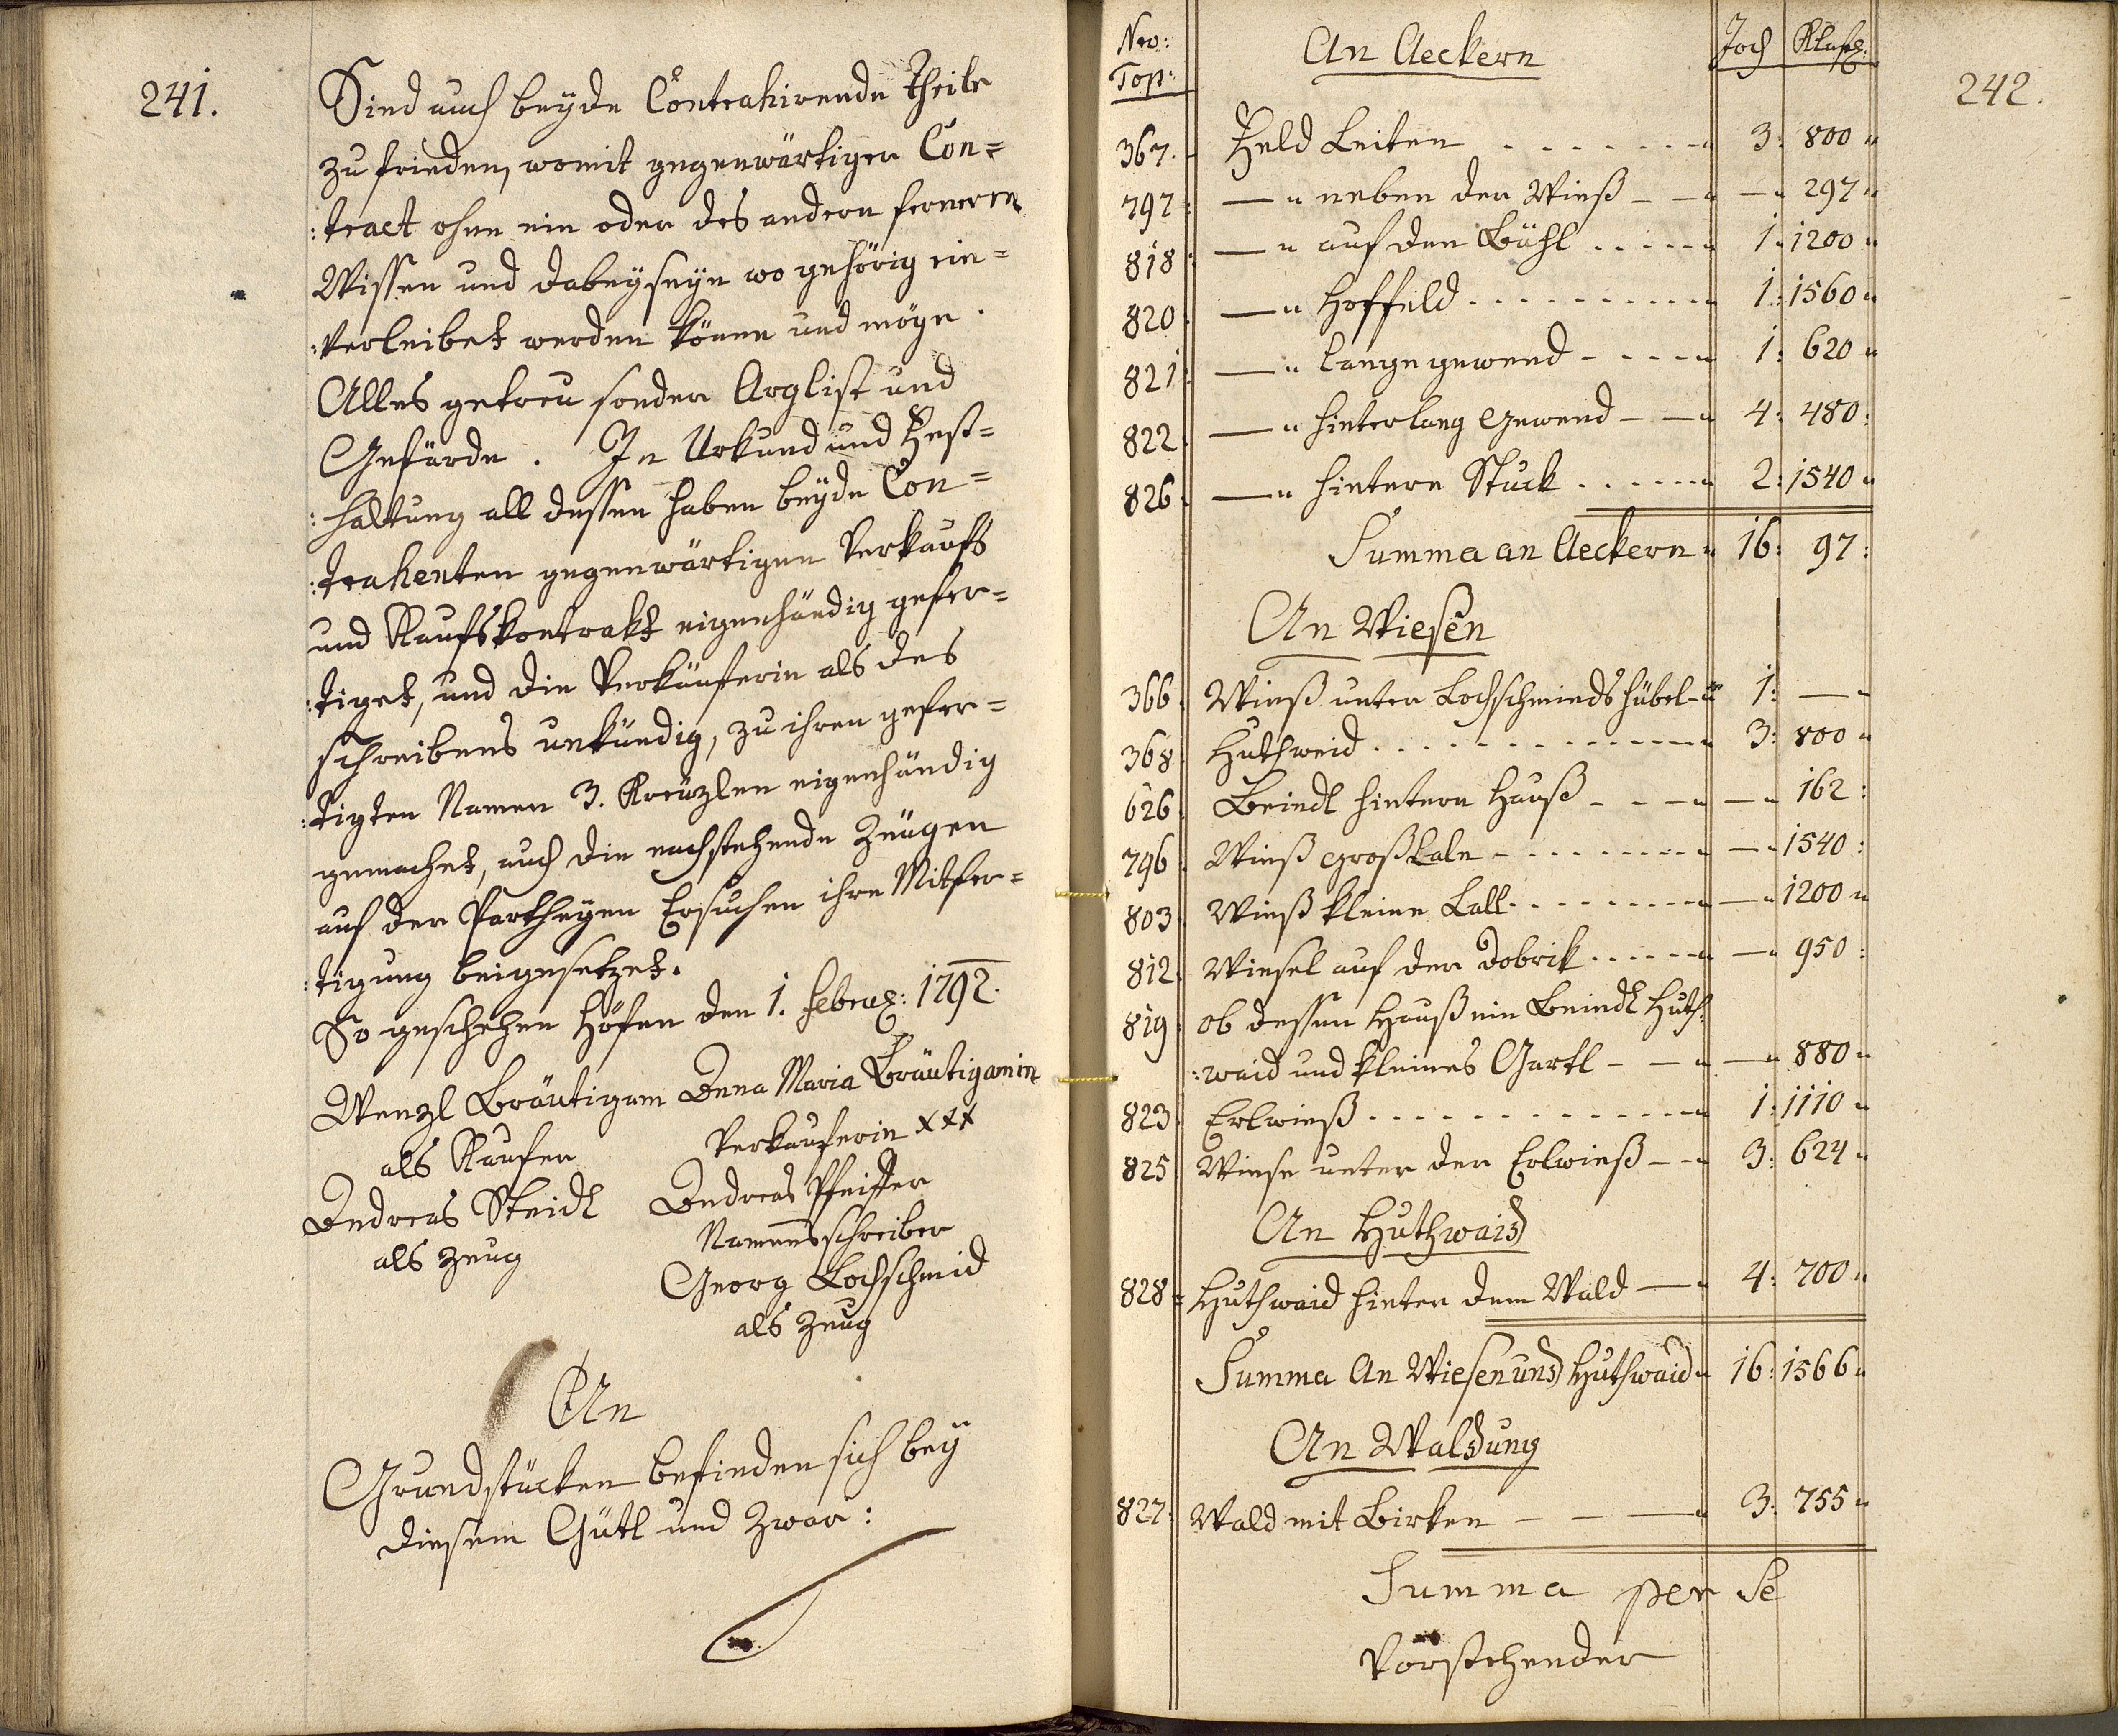 241.
Sind auch beÿde Contrahirende Theile
zu frieden, womit gegenwärtiger Con=
:tract ohne ein oder des andern fernern
Wissen und dabeÿseÿn wo gehörig ein=
:verleibet werden könne und möge.
Alles getreu sonder Arglist und
Gefärde. In Urkund und Fest=
:haltung all dessen haben beÿde Con=
:trahenten gegenwärtigen Verkaufs
und Kaufskontrakt eigenhändig gefer=
:tiget, und die Verkäuferin als des
schreibens unkündig, zu ihren gefer=
:tigten Namen 3. Kreüzlen eigenhändig
gemachet, auch die nachstehende Zeügen
auf der Partheÿen Ersuchen ihre Mitfer=
:tigung beigesetzet.
So geschehen Höfen den 1. Februar: 1792.
Wenzl Bräutigam Anna Maria Bräutigamin
als Kaufer Verkauferin xxx
Andreas Steidl Andreas Pfeiffer
als Zeug Namensschreiber
Georg Lochschmid
als Zeug
An
Grundstücken befinden sich beÿ
diesem Gütl und Zwar:
242.
Nro: Top: An Aeckern Joch Klaft:
367. Feld Leiten 3: 800
797: — " neben der Wieß — 297
818: — " auf den Bühl 1 1200
820. — " Hoffeld 1: 1560
821: — " lange gewend 1: 620
822. — " hinterlang Gewend 4: 480:
826. — " hintere Stuck 2: 1540
Summa an Aeckern 16: 97:
An Wiesen
366. Wieß unter Lochschmieds hübel 1: —
368. Huthweid 3: 800
626. Beindl hintern Hauß — 162:
796. Wieß große Lale — 1540:
803. Wieß kleine Lall — 1200
812. Wiesel auf der Dobrik — 950:
819: ob dessen Hauß ein Beindl Huth:
:waid und kleines Gartl — 880
823. Erlwieß 1: 1110
825 Wiese unter der Erlwieß 3: 624
An Huthwaid
828= Huthwaid hinter dem Wald 4: 700
Summa An Wiesen und Huthwaid 16: 1566
An Waldung
827: Wald mit Birken 3: 755
Summa per se
Vorstehender